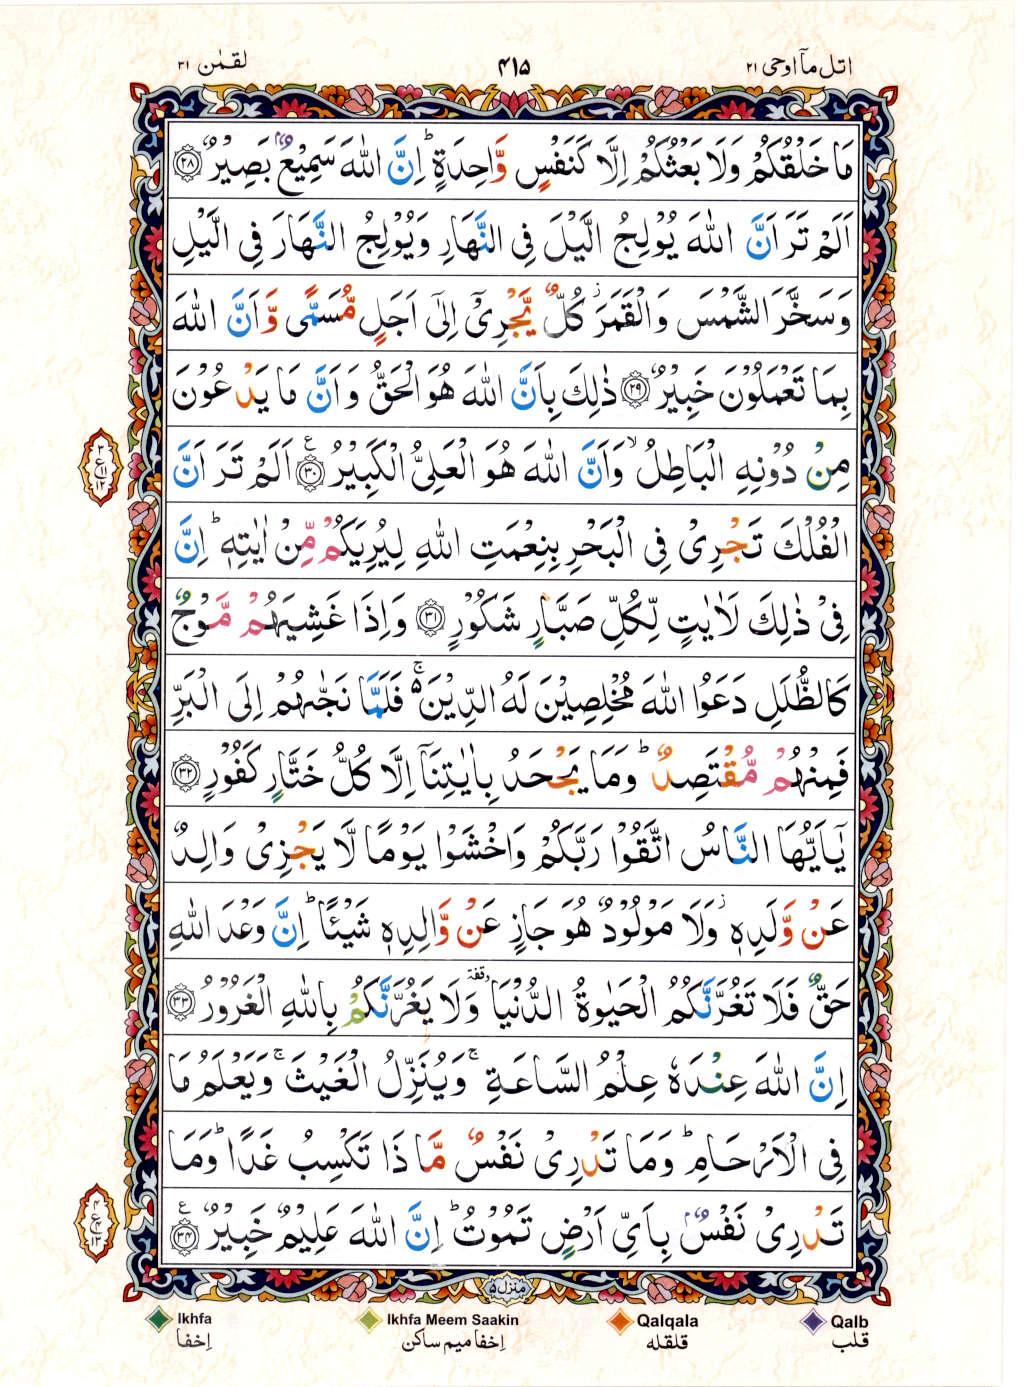 اتل مآ اوحی ۲۱
۴۱۵
لقمٰن ۳۱
مَا خَلْقُكُمْ وَلَا بَعْثُكُمْ اِلَّا كَنَفْسٍ وَّاحِدَةٍ ؕ اِنَّ اللّٰهَ سَمِیْعٌۢ بَصِیْرٌ ﴿۲۸﴾
اَلَمْ تَرَ اَنَّ اللّٰهَ یُوْلِجُ الَّیْلَ فِی النَّهَارِ وَیُوْلِجُ النَّهَارَ فِی الَّیْلِ
وَسَخَّرَ الشَّمْسَ وَالْقَمَرَ ؗ كُلٌّ یَّجْرِیْۤ اِلٰۤی اَجَلٍ مُّسَمًّی وَّاَنَّ اللّٰهَ
بِمَا تَعْمَلُوْنَ خَبِیْرٌ ﴿۲۹﴾ ذٰلِكَ بِاَنَّ اللّٰهَ هُوَ الْحَقُّ وَاَنَّ مَا یَدْعُوْنَ
مِنْ دُوْنِهِ الْبَاطِلُ ۙ وَاَنَّ اللّٰهَ هُوَ الْعَلِیُّ الْكَبِیْرُ ﴿۳۰﴾ اَلَمْ تَرَ اَنَّ
الْفُلْكَ تَجْرِیْ فِی الْبَحْرِ بِنِعْمَتِ اللّٰهِ لِیُرِیَكُمْ مِّنْ اٰیٰتِهٖ ؕ اِنَّ
فِیْ ذٰلِكَ لَاٰیٰتٍ لِّكُلِّ صَبَّارٍ شَكُوْرٍ ﴿۳۱﴾ وَاِذَا غَشِیَهُمْ مَّوْجٌ
كَالظُّلَلِ دَعَوُا اللّٰهَ مُخْلِصِیْنَ لَهُ الدِّیْنَ ۚ۬ فَلَمَّا نَجّٰىهُمْ اِلَی الْبَرِّ
فَمِنْهُمْ مُّقْتَصِدٌ ؕ وَمَا یَجْحَدُ بِاٰیٰتِنَاۤ اِلَّا كُلُّ خَتَّارٍ كَفُوْرٍ ﴿۳۲﴾
یٰۤاَیُّهَا النَّاسُ اتَّقُوْا رَبَّكُمْ وَاخْشَوْا یَوْمًا لَّا یَجْزِیْ وَالِدٌ
عَنْ وَّلَدِهٖ ؗ وَلَا مَوْلُوْدٌ هُوَ جَازٍ عَنْ وَّالِدِهٖ شَیْئًا ؕ اِنَّ وَعْدَ اللّٰهِ
حَقٌّ فَلَا تَغُرَّنَّكُمُ الْحَیٰوةُ الدُّنْیَا ۥ وقفة وَلَا یَغُرَّنَّكُمْ بِاللّٰهِ الْغَرُوْرُ ﴿۳۳﴾
اِنَّ اللّٰهَ عِنْدَهٗ عِلْمُ السَّاعَةِ ۚ وَیُنَزِّلُ الْغَیْثَ ۚ وَیَعْلَمُ مَا
فِی الْاَرْحَامِ ؕ وَمَا تَدْرِیْ نَفْسٌ مَّاذَا تَكْسِبُ غَدًا ؕ وَمَا
تَدْرِیْ نَفْسٌۢ بِاَیِّ اَرْضٍ تَمُوْتُ ؕ اِنَّ اللّٰهَ عَلِیْمٌ خَبِیْرٌ ﴿۳۴﴾
منزل ۵
Ikhfa
اِخفا
Ikhfa Meem Saakin
اِخفا میم ساکن
Qalqala
قلقله
Qalb
قلب